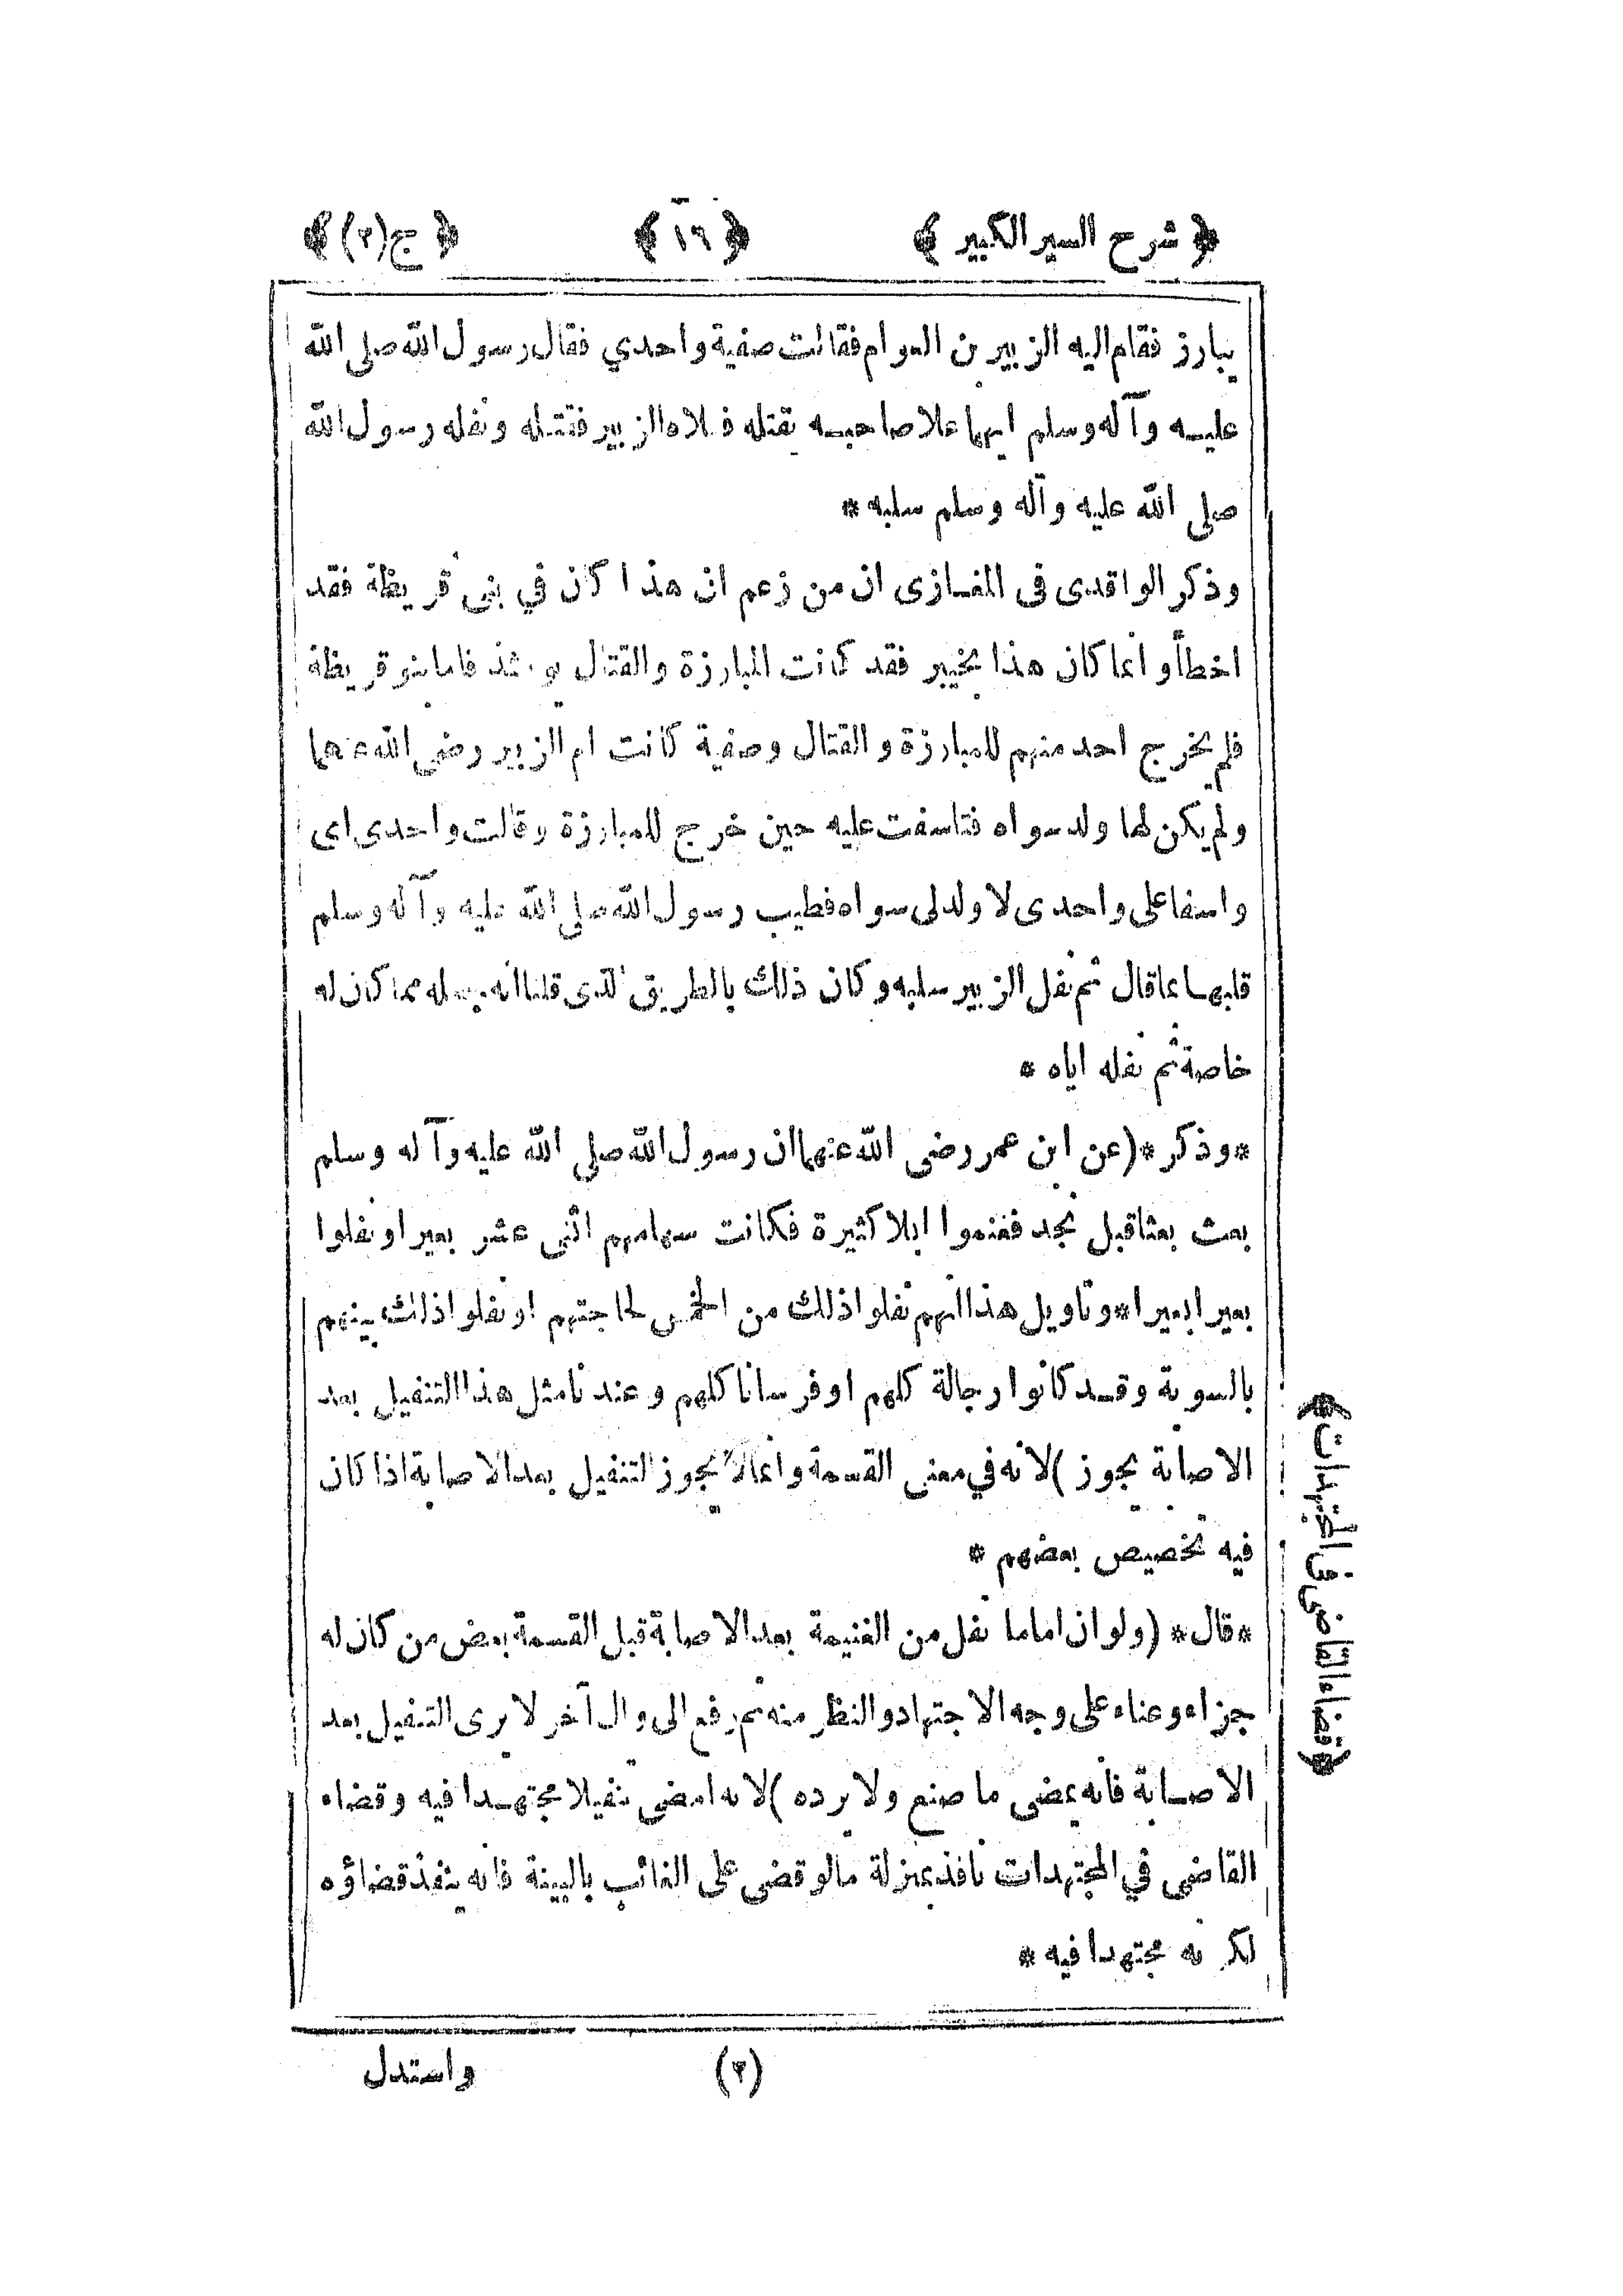 ﴿ شرح السير الكبير ﴾ ﴿ ١٦ ﴾ ﴿ ج (٢) ﴾
يبارز فقام اليه الزبير بن العوام فقالت صفية واحدي فقال رسول الله صلى الله
عليه وآله وسلم ايهما علا صاحبه يقتله فعلاه الزبير فقتله ونفله رسول الله
صلى الله عليه وآله وسلم سلبه *
وذكر الواقدى فى المغازى ان من زعم ان هذا كان في بنى قريظة فقد
اخطأ وانما كان هذا بخيبر فقد كانت المبارزة والقتال يومئذ فاما بنو قريظة
فلم يخرج احد منهم للمبارزة والقتال وصفية كانت ام الزبير رضى الله عنهما
ولم يكن لها ولد سواه فتاسفت عليه حين خرج للمبارزة وقالت واحدى اى
واسفا على واحدى لا ولد لى سواه فطيب رسول الله صلى الله عليه وآله وسلم
قلبها بما قال ثم نفل الزبير سلبه وكان ذلك بالطريق الذى قلنا انه جعله مما كان له
خاصة ثم نفله اياه *
*وذكر* (عن ابن عمر رضى الله عنهما ان رسول الله صلى الله عليه وآله وسلم
بعث بعثا قبل نجد فغنموا ابلا كثيرة فكانت سهامهم اثنى عشر بعيرا ونفلوا
بعيرا بعيرا * وتاويل هذا انهم نفلوا ذلك من الخمس لحاجتهم او نفلوا ذلك بينهم
بالسوية وقد كانوا رجالة كلهم او فرسانا كلهم وعندنا مثل هذا التنفيل بعد
الاصابة يجوز) لانه في معنى القسمة وانما لا يجوز التنفيل بعد الاصابة اذا كان
فيه تخصيص بعضهم *
*قال* (ولو ان اماما نفل من الغنيمة بعد الاصابة قبل القسمة بعض من كان له
جزاء وعناء على وجه الاجتهاد والنظر منه ثم رفع الى وال آخر لا يرى التنفيل بعد
الاصابة فانه يمضى ما صنع ولا يرده) لانه امضى تنفيلا مجتهدا فيه وقضاء
القاضى في المجتهدات نافذ بمنزلة ما لو قضى على الغائب بالبينة فانه ينفذ قضاؤه
لكونه مجتهدا فيه *
﴿ قضاء القاضى فى المجتهدات ﴾
(٢) واستدل